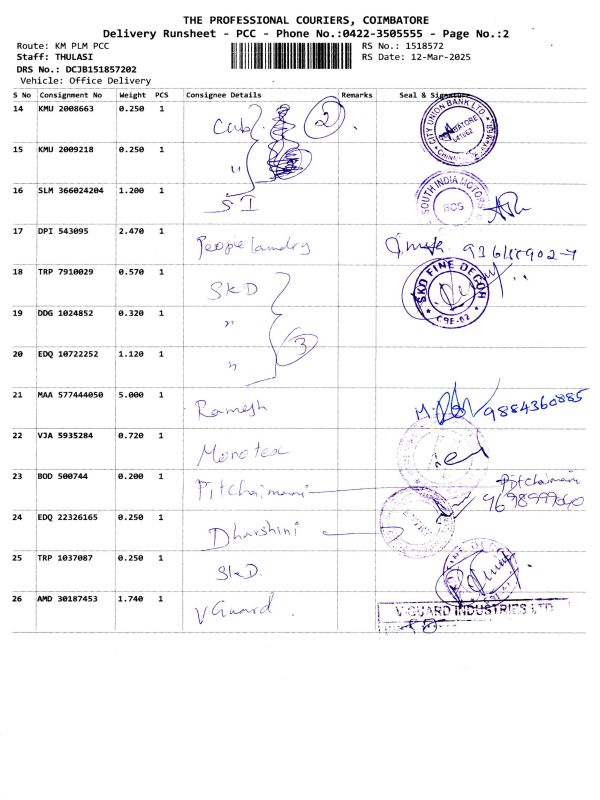 THE PROFESSIONAL COURIERS, COIMBATORE
Delivery Runsheet - PCC - Phone No.:0422-3505555 - Page No.:2
Route: KM PLM PCC
RS No.: 1518572
Staff: THULASI
RS Date: 12-Mar-2025
DRS No.: DCJB151857202
Vehicle: Office Delivery
S No Consignment No Weight PCS Consignee Details Remarks Seal & Signature
14 KMU 2008663 0.250 1 Cub 2 CITY UNION BANK LTD
15 KMU 2009218 0.250 1 "
16 SLM 366024204 1.200 1 SI SOUTH INDIA MOTORS
17 DPI 543095 2.470 1 People laundry
18 TRP 7910029 0.570 1 SKD SKD FINE DECOR CBE-02
19 DDG 1024852 0.320 1 "
20 EDQ 10722252 1.120 1 " 3
21 MAA 577444050 5.000 1 Ramesh 9884360885
22 VJA 5935284 0.720 1 Monotex
23 BOD 500744 0.200 1 Pitchaimani Pitchaimani
24 EDQ 22326165 0.250 1 Dharshini
25 TRP 1037087 0.250 1 SKD.
26 AMD 30187453 1.740 1 V Guard. V-GUARD INDUSTRIES LTD